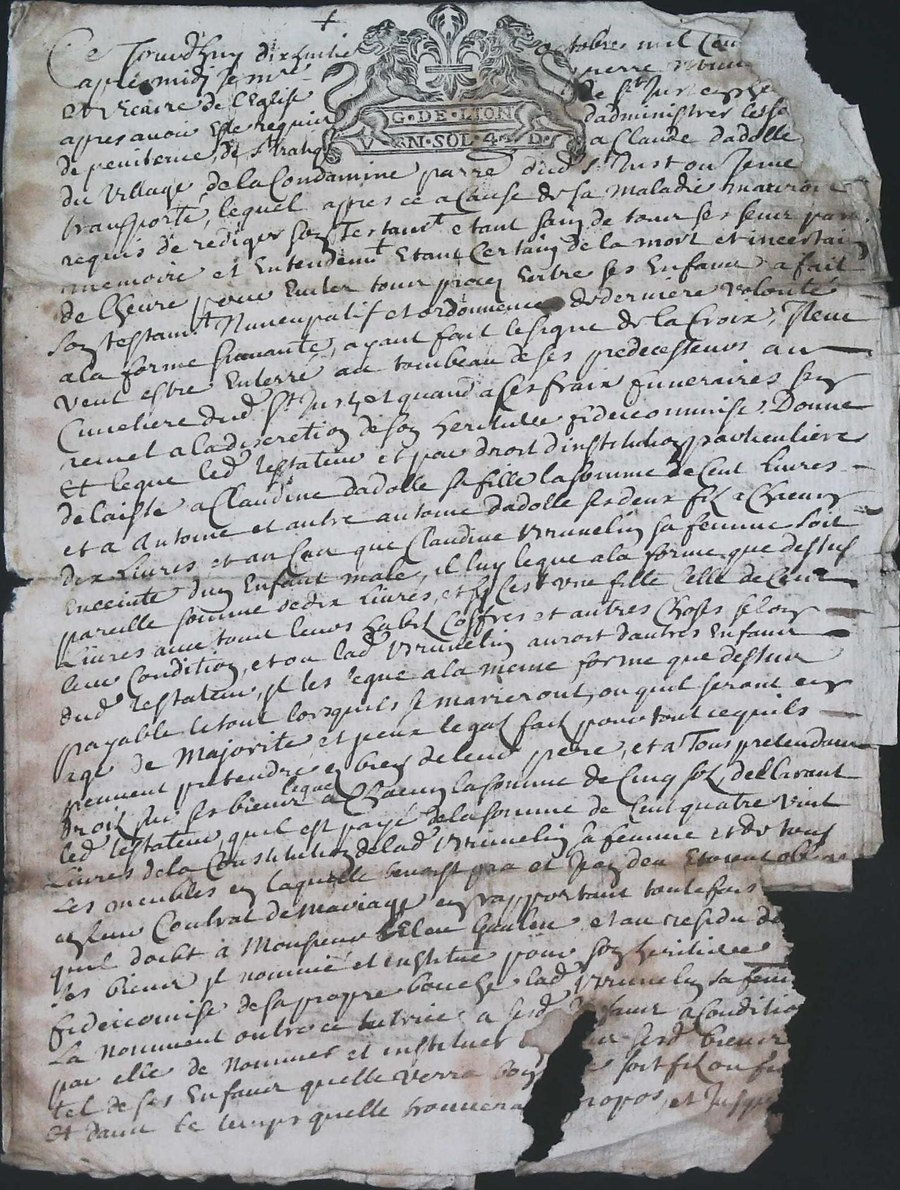 Ce Jourdhuy dixhuitie octobres mil
apres midi Je pierre
et vicaire de l'Eglise de St Just
G·DE·LION
V N·SOL·4 D·
apres avoir este requis d'administrer les
de penitence de a Claude dadolle
du village de la Condamine parre dud St Just ou Jeme
transporté, lequel apres ce a Cause de sa maladie
requis de rediger son Testamt etant sain de tour ses
memoire et Entendemt Etant Certain de la mort et incertain
de lheure pour Eviter tour proces Entre ses Enfans a fait
son testamt Nuncupatif et ordonnence de derniere volonté
a la forme suivante, ayant fait le signe de la Croix, Jl
veut estre Enterré au tombeau de ses predecesseurs au
Cimetiere dud St Just et quand a ses frais funeraires s'en
remet a la discretion de son heritiere fideicommise, Donne
Et legue led Testateur et par droit d'institution particuliere
delaisse a Claudine dadolle sa fille la somme de Cent Livres
et a Antoine et autre antoine dadolle ses deux fils a Chacun
dix Livres, et au Cas que Claudine Vrunelin sa femme soit
Enceinte d'un Enfant male, il luy legue a la forme que dessus
pareille somme de dix Livres, et sy C'est une fille Celle de Cent
Livres avec tour leurs habit Coffres et autres Choses selon
leur Condition, et ou lad Vrunelin auroit d'autres Enfans
dud Testateur, Jl les legue a la meme forme que dessus
payable le tout lorsquils se marieront, ou quil seront en
age de Majorité et ceux legat fait pour tout ce quils
peuvent pretendre en biens de leur pere, et a Tous pretendans
droit sur ses biens legue a Chacun la somme de Cinq sols, declarant
led Testateur, quil est payé de la somme de Cent quatre vint
Livres de la Constitution de lad Vrunelin sa femme et de tous
les meubles en laquelle benoist et Etoient
en leur Contrat de Mariage en rapportant toutefois
quil doibt à Monsieur et au residu de
ses biens Jl nommé et institue pour son heritiere
fideicomise de sa propre bouche lad Vrunelin sa fem
la nomment outre ce tutrice a sesd a Conditio
par elle de Nommer et instituer sesd biens
tel de ses Enfans quelle verra bon soit fils ou fi
Et dans le temps quelle trouvera propos, et